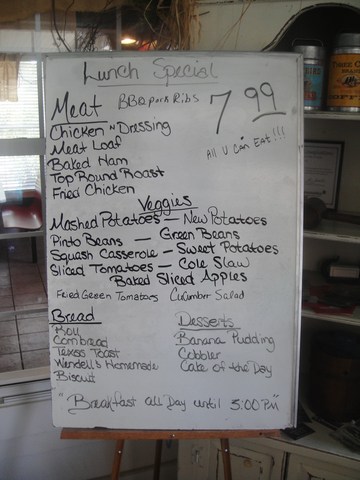 Lunch Special
Meat BBQ Pork Ribs 7 99
Chicken N Dressing
All U Can Eat!!!
Meat Loaf
Baked Ham
Top Round Roast
Fried Chicken
Veggies
Mashed Potatoes — New Potatoes
Pinto Beans — Green Beans
Squash Casserole — Sweet Potatoes
Sliced Tomatoes — Cole Slaw
Baked Sliced Apples
Fried Green Tomatoes Cucumber Salad
Bread Desserts
Roll Banana Pudding
Cornbread Cobbler
Texas Toast Cake of the Day
Wendell's Homemade
Biscuit
"Breakfast all Day until 3:00 PM"